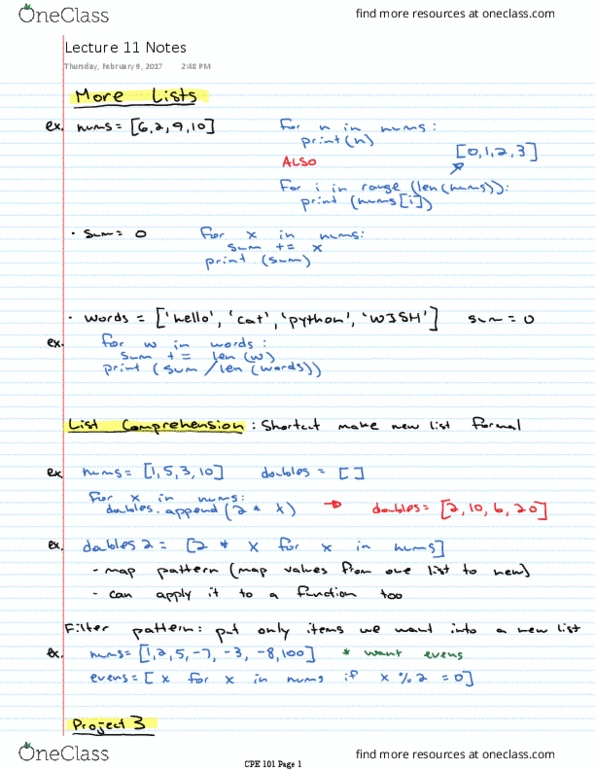 OneClass find more resources at oneclass.com
Lecture 11 Notes
Thursday, February 9, 2017 2:48 PM
More Lists
ex. nums = [6,2,9,10] for n in nums:
print(n)
[0,1,2,3]
ALSO
for i in range (len(nums)):
print (nums[i])
• sum = 0 for x in nums:
sum += x
print (sum)
• words = ['hello', 'cat', 'python', 'WJSH'] sum = 0
ex. for w in words:
sum += len(w)
print (sum/len(words))
List Comprehension: Shortcut make new list formal
ex nums = [1,5,3,10] doubles = []
for x in nums:
doubles.append(2 * x) → doubles = [2,10,6,20]
ex. doubles2 = [2 * x for x in nums]
- map pattern (map values from one list to new)
- can apply it to a function too
Filter pattern: put only items we want into a new list
ex. nums = [1,2,5,-7,-3,-8,100] * want evens
evens = [x for x in nums if x % 2 = 0]
Project 3
OneClass find more resources at oneclass.com
CPE 101 Page 1